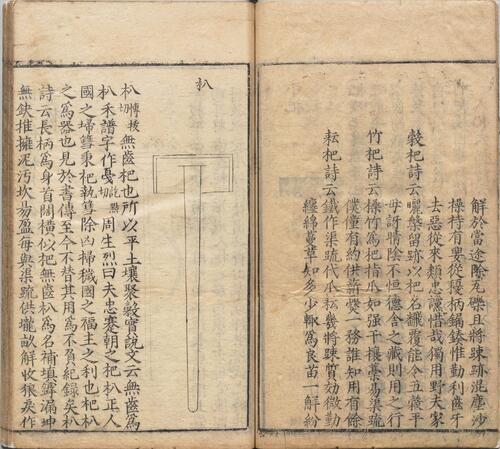 解於當途除瓦礫且將踈跡混塵沙
操持有要從穩柄鍋鏃惟勤利齒牙
去惡從來類忠讜惜哉獨用野夫家
穀杷詩云曬槃留跡以杷名飜覆能令五穀平
毋訝情陰不恒德含之藏則用之行
竹杷詩云操竹爲杷指瓜如强干穰藁易渠疏
僕僮有約供薪爨一務誰知用有餘
耘杷詩云鐵作渠疏代瓜耘幾將踈質効微勤
纏綿蔓草知多少輙爲良苗一解紛
朳
朳博拔切無齒杷也所以平土壤聚穀實說文云無齒爲
朳禾譜字作戞訖黠切周生烈曰夫忠蹇朝之杷朳正人
國之埽篲秉杷執篲除凶掃穢國之福主之利也杷朳
之爲器也見於書傳至今不替其用爲不負紀錄矣朳
詩云長柄爲身首闊橫似杷無齒朳爲名補填罅漏坤
無缺推擁泥污坎易盈每與渠疏供壠畝解收狼戾作